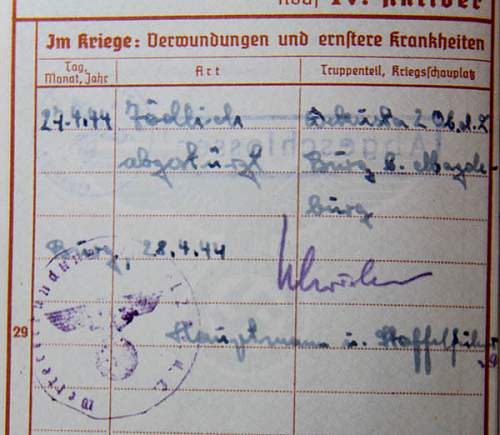 IV. Aktiver
Im Kriege: Verwundungen und ernstere Krankheiten
Tag, Monat, Jahr
Art
Truppenteil, Kriegsschauplatz
27.4.44 Tödlich 2 Ob.d.L
abgestürzt Burg b. Magde-
burg
Abgeschlossen
Burg, 28.4.44
29
Hauptmann u. Staffelführer